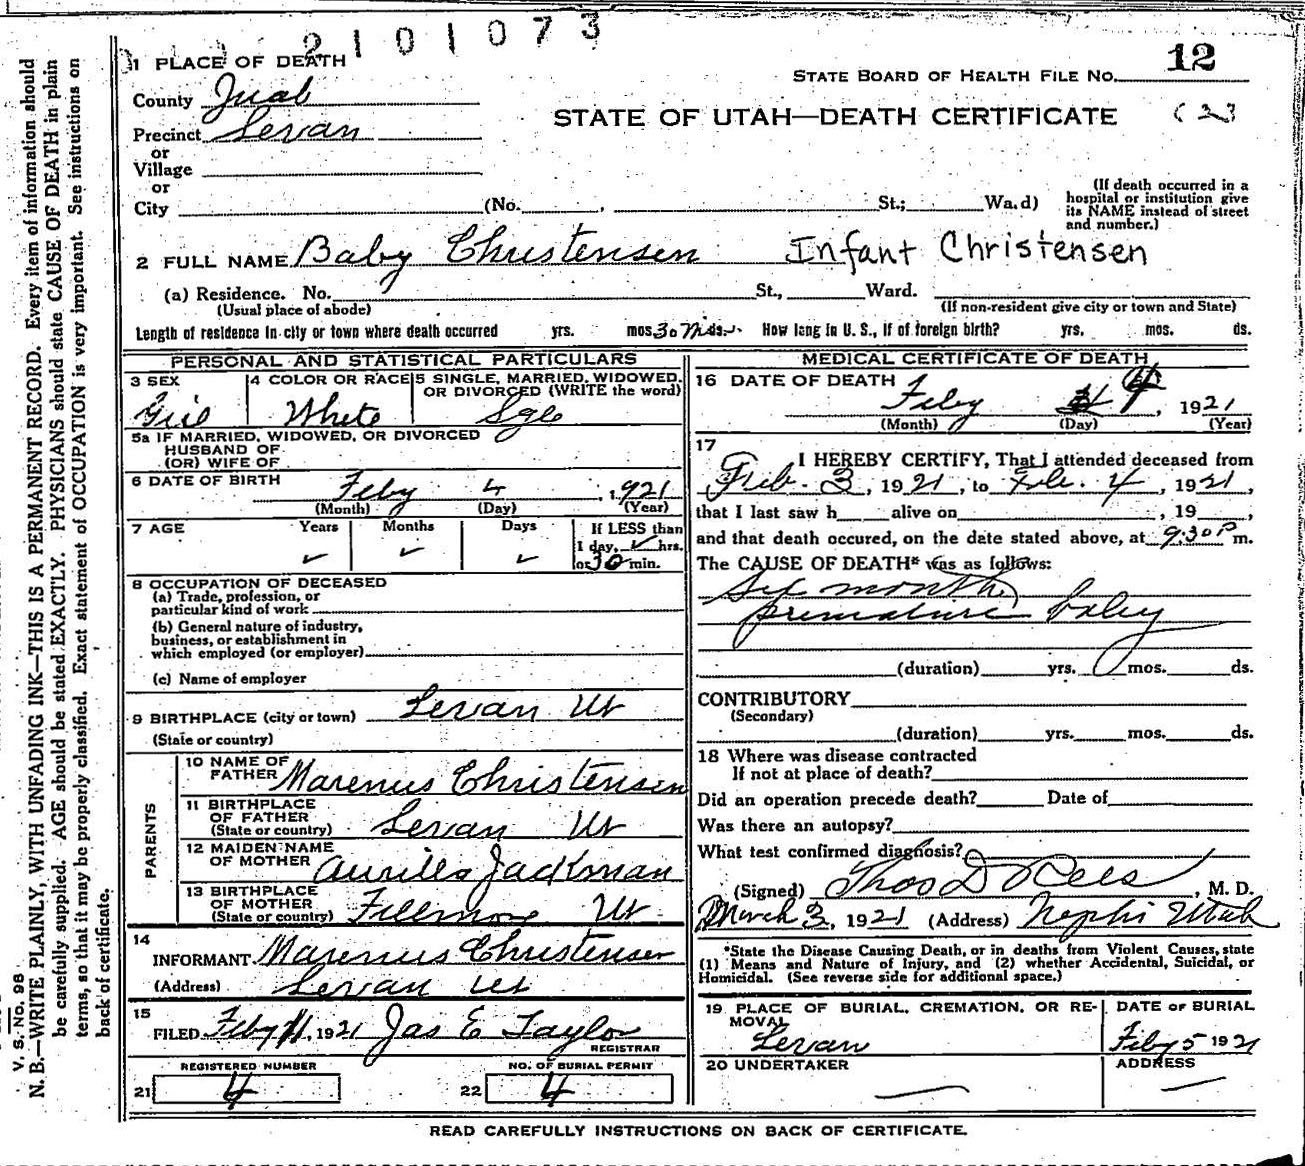 2101073
1 PLACE OF DEATH
STATE BOARD OF HEALTH FILE NO. 12
County Juab
STATE OF UTAH—DEATH CERTIFICATE
Precinct Levan
or
Village
or
City (No. , St.; Wa.d)
(If death occurred in a
hospital or institution give
its NAME instead of street
and number.)
2 FULL NAME Baby Christensen Infant Christensen
(a) Residence. No. St., Ward.
(Usual place of abode) (If non-resident give city or town and State)
Length of residence in city or town where death occurred yrs. mos. 30 Min ds. How long in U. S., if of foreign birth? yrs. mos. ds.
PERSONAL AND STATISTICAL PARTICULARS
3 SEX 4 COLOR OR RACE 5 SINGLE, MARRIED, WIDOWED,
OR DIVORCED (WRITE the word)
Girl White Sgle
5a IF MARRIED, WIDOWED, OR DIVORCED
HUSBAND OF
(OR) WIFE OF
6 DATE OF BIRTH Feby 4, 1921
(Month) (Day) (Year)
7 AGE Years Months Days If LESS than
1 day, hrs.
or 30 min.
8 OCCUPATION OF DECEASED
(a) Trade, profession, or
particular kind of work
(b) General nature of industry,
business, or establishment in
which employed (or employer)
(c) Name of employer
9 BIRTHPLACE (city or town) Levan Ut
(State or country)
PARENTS
10 NAME OF
FATHER Marenus Christensen
11 BIRTHPLACE
OF FATHER
(State or country) Levan Ut
12 MAIDEN NAME
OF MOTHER Aurilla Jackman
13 BIRTHPLACE
OF MOTHER
(State or country) Fillmore Ut
14
INFORMANT Marenus Christensen
(Address) Levan Ut
15
FILED Feby 11, 1921 Jas E Taylor
REGISTRAR
REGISTERED NUMBER NO. OF BURIAL PERMIT
21 4 22 4
MEDICAL CERTIFICATE OF DEATH
16 DATE OF DEATH
Feby 4, 1921
(Month) (Day) (Year)
17
I HEREBY CERTIFY, That I attended deceased from
Feb. 3, 1921, to Feb. 4, 1921,
that I last saw h alive on , 19 ,
and that death occured, on the date stated above, at 9:30 P m.
The CAUSE OF DEATH* was as follows:
Six months
premature baby
(duration) yrs. mos. ds.
CONTRIBUTORY
(Secondary)
(duration) yrs. mos. ds.
18 Where was disease contracted
If not at place of death?
Did an operation precede death? Date of
Was there an autopsy?
What test confirmed diagnosis?
(Signed) Thos D Rees, M. D.
March 3, 1921 (Address) Nephi Utah
*State the Disease Causing Death, or in deaths from Violent Causes, state
(1) Means and Nature of Injury, and (2) whether Accidental, Suicidal, or
Homicidal. (See reverse side for additional space.)
19 PLACE OF BURIAL, CREMATION, OR RE-
MOVAL
Levan
DATE OF BURIAL
Feby 5 1921
20 UNDERTAKER
ADDRESS
READ CAREFULLY INSTRUCTIONS ON BACK OF CERTIFICATE.
V. S. No. 98
N. B.—WRITE PLAINLY, WITH UNFADING INK—THIS IS A PERMANENT RECORD. Every item of information should
be carefully supplied. AGE should be stated EXACTLY. PHYSICIANS should state CAUSE OF DEATH in plain
terms, so that it may be properly classified. Exact statement of OCCUPATION is very important. See instructions on
back of certificate.